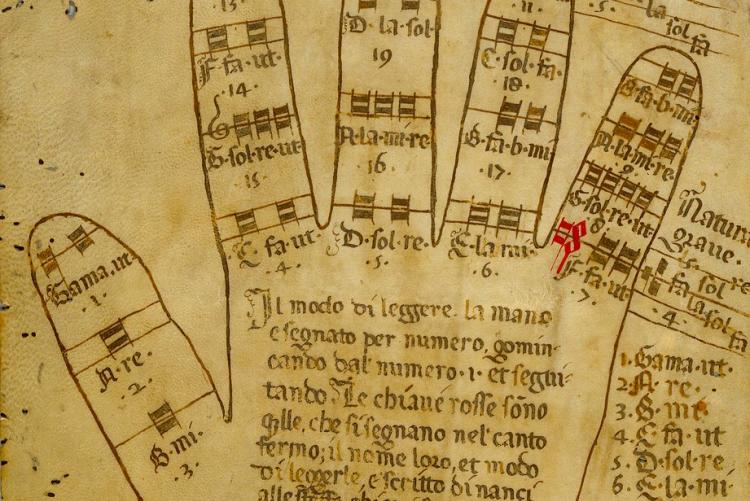 13.
F fa ut
.14.
G sol re ut
.15.
C fa ut.
.4.
D la sol
19
A la mi re
16.
D sol re.
.5.
.11.
C sol fa.
.18.
B fa b mi
.17.
E la mi.
.6.
la sol fa
.5.
B fa b mi
A la mi re
9.
G sol re ut
8
F fa ut
.7.
Natura
grave.
fa sol re
la sol fa
.4.
Gama ut
.1.
A re.
.2.
B mi.
.3.
Il modo di leggere la mano
e segnato per numero, comin-
cando dal numero .1. et segui-
tando Le chiave rosse sono
qlle, che si segnano nel canto
fermo; il nome loro, et modo
di leggerle, e scritto di nanci
1. Gama ut.
2. A re.
3. B mi
4. C fa ut
5. D sol re.
6. E la mi